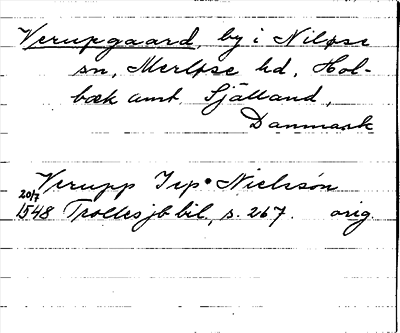 Verupgaard, by i Niløse
sn, Merløse hd, Hol-
bæk amt, Själland,
Danmark
Verupp Jep Nielssøn
20/7
1548 Trolles jb bil, s. 267. orig.